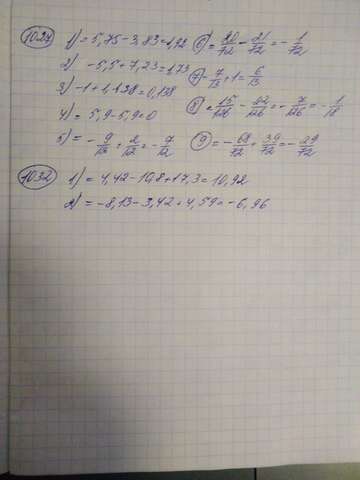 1027
1) = 5,75 - 3,83 = 1,92
2) -5,5 + 7,23 = 1,73
3) -1 + 1,138 = 0,138
4) = 5,9 - 5,9 = 0
5) = -9/13 + 2/13 = -7/13
6) = 20/72 - 21/72 = -1/72
7) -7/13 + 1 = 6/13
8) = 15/126 - 22/126 = -7/126 = -1/18
9) = -68/72 + 39/72 = -29/72
1032
1) = 4,42 - 10,8 + 17,3 = 10,92
2) = -8,13 - 3,42 + 4,59 = -6,96